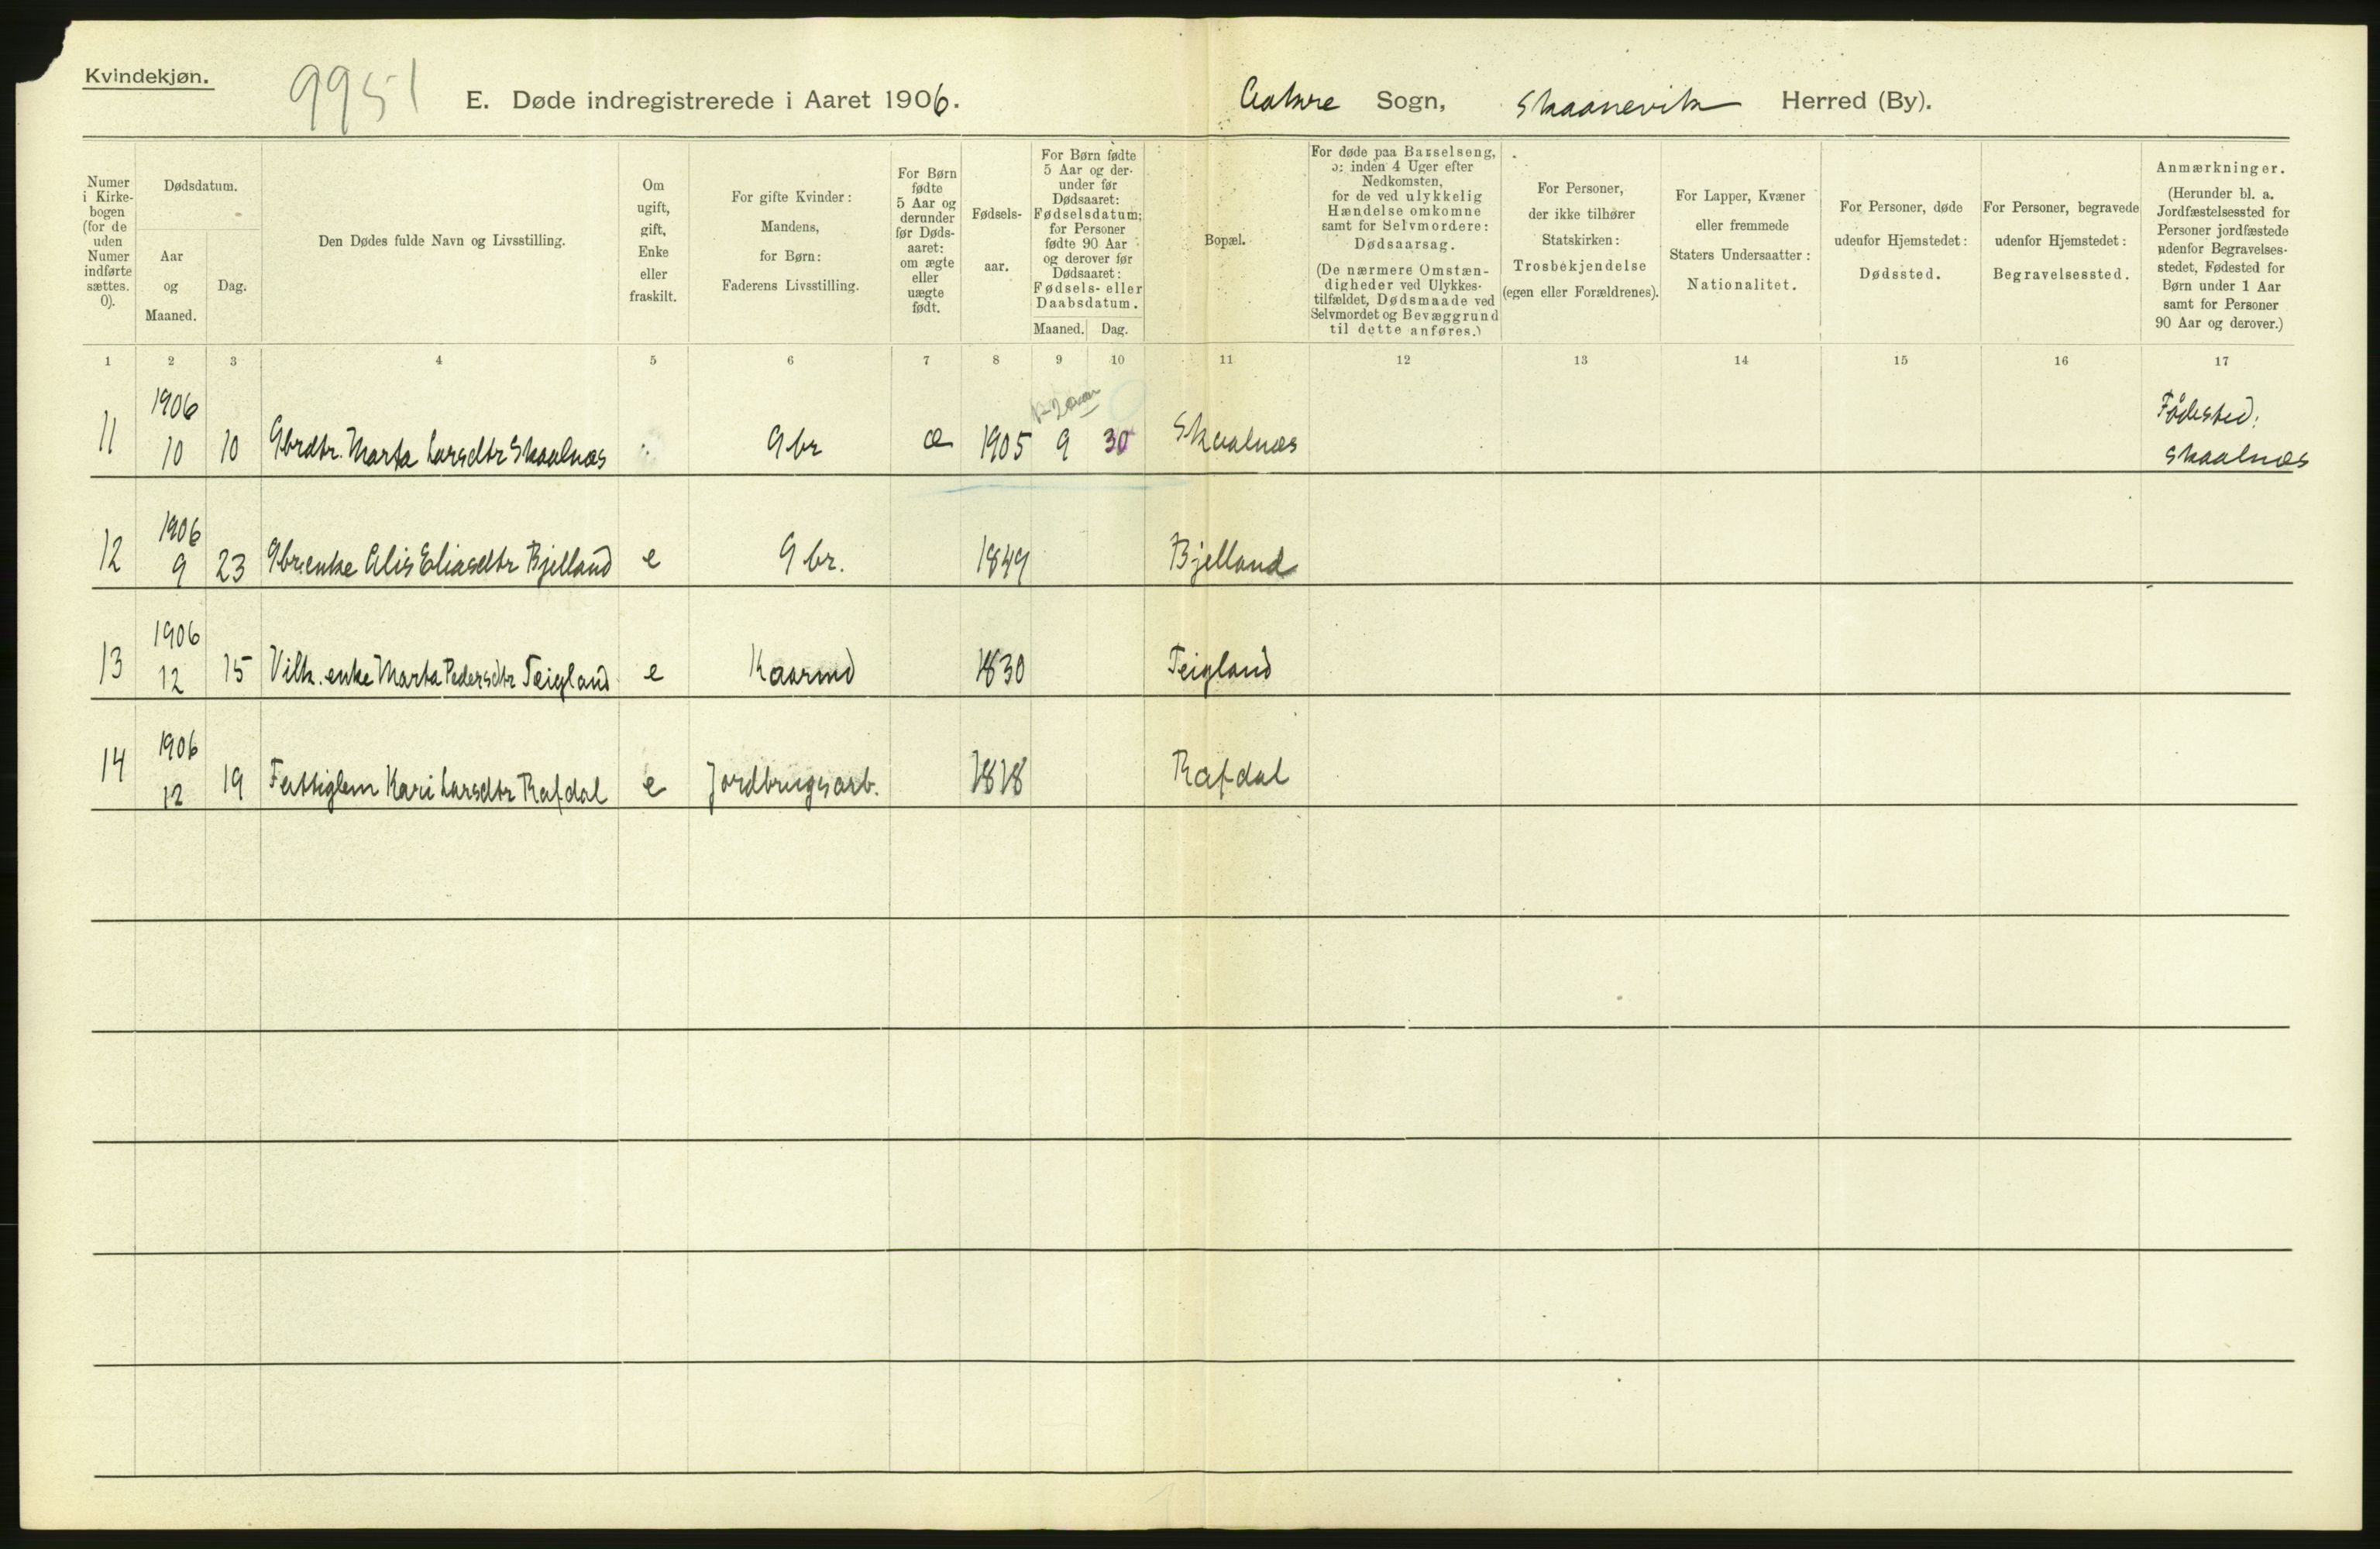 Kvindekjøn.
9951
E. Døde indregistrerede i Aaret 1906.
Aakre Sogn, Skaanevik Herred (By).
Numer i Kirkebogen (for de uden Numer indførte sættes. 0).
Dødsdatum.
Aar og Maaned.
Dag.
Den Dødes fulde Navn og Livsstilling.
Om ugift, gift, Enke eller fraskilt.
For gifte Kvinder: Mandens, for Børn: Faderens Livsstilling.
For Børn fødte 5 Aar og derunder før Dødsaaret: om ægte eller uægte født.
Fødselsaar.
For Børn fødte 5 Aar og derunder før Dødsaaret: Fødselsdatum; for Personer fødte 90 Aar og derover før Dødsaaret: Fødsels- eller Daabsdatum.
Maaned. Dag.
Bopæl.
For døde paa Barselseng, ɔ: inden 4 Uger efter Nedkomsten, for de ved ulykkelig Hændelse omkomne samt for Selvmordere: Dødsaarsag.
(De nærmere Omstændigheder ved Ulykkestilfældet, Dødsmaade ved Selvmordet og Bevæggrund til dette anføres.)
For Personer, der ikke tilhører Statskirken: Trosbekjendelse (egen eller Forældrenes).
For Lapper, Kvæner eller fremmede Staters Undersaatter: Nationalitet.
For Personer, døde udenfor Hjemstedet: Dødssted.
For Personer, begravede udenfor Hjemstedet: Begravelsessted.
Anmærkninger.
(Herunder bl. a. Jordfæstelsessted for Personer jordfæstede udenfor Begravelsesstedet, Fødested for Børn under 1 Aar samt for Personer 90 Aar og derover.)
1 2 3 4 5 6 7 8 9 10 11 12 13 14 15 16 17
11 1906 10 10 Gbrdtr. Marta Larsdtr Skaalnæs Gbr æ 1905 9 30 Skaalnæs Fødested: Skaalnæs
12 1906 9 23 Gbr.enke Alis Eliasdtr Bjelland e Gbr. 1849 Bjelland
13 1906 12 15 Vilk. enke Marta Pedersdtr Teigland e Kaarmd 1830 Teigland
14 1906 12 19 Fattiglem Kari Larsdtr Rafdal e Jordbrugsarb. 1818 Rafdal